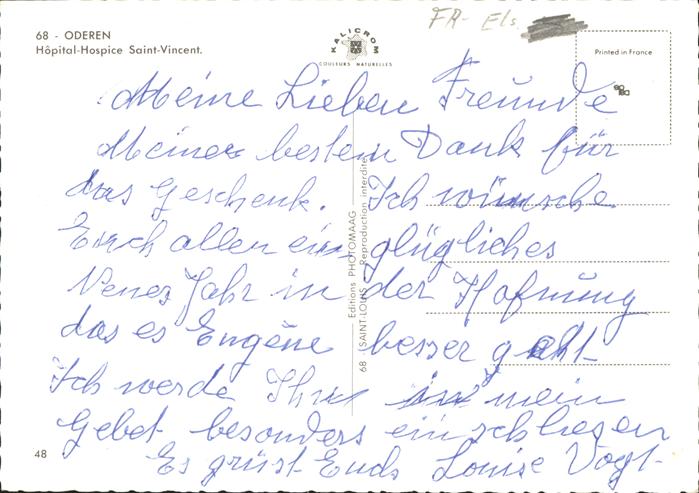 FR- Els.
68 - ODEREN
Hôpital-Hospice Saint-Vincent.
KALICROM
COULEURS NATURELLES
Printed in France
Meine Lieben Freunde
Meines besten Dank für
das Geschenk. Ich wünsche
Euch allen ein glügliches
Neues Jahr in der Hofnung
das es Eugène besser geht
Ich werde Ihm in mein
Gebet besonders einschliesen
Es grüst Euch Louise Vogt-
Editions PHOTOMAAG
68 (SAINT-LOUIS) Reproduction interdite
48